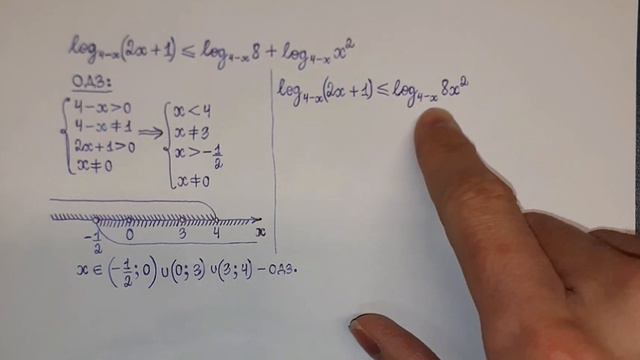 log₄₋ₓ(2x+1) ≤ log₄₋ₓ8 + log₄₋ₓx²
ОДЗ:
4-x>0
4-x≠1
2x+1>0
x≠0
⟹
x<4
x≠3
x>-1/2
x≠0
-1/2 0 3 4 x
x ∈ (-1/2; 0) ∪ (0; 3) ∪ (3; 4) - ОДЗ.
log₄₋ₓ(2x+1) ≤ log₄₋ₓ8x²